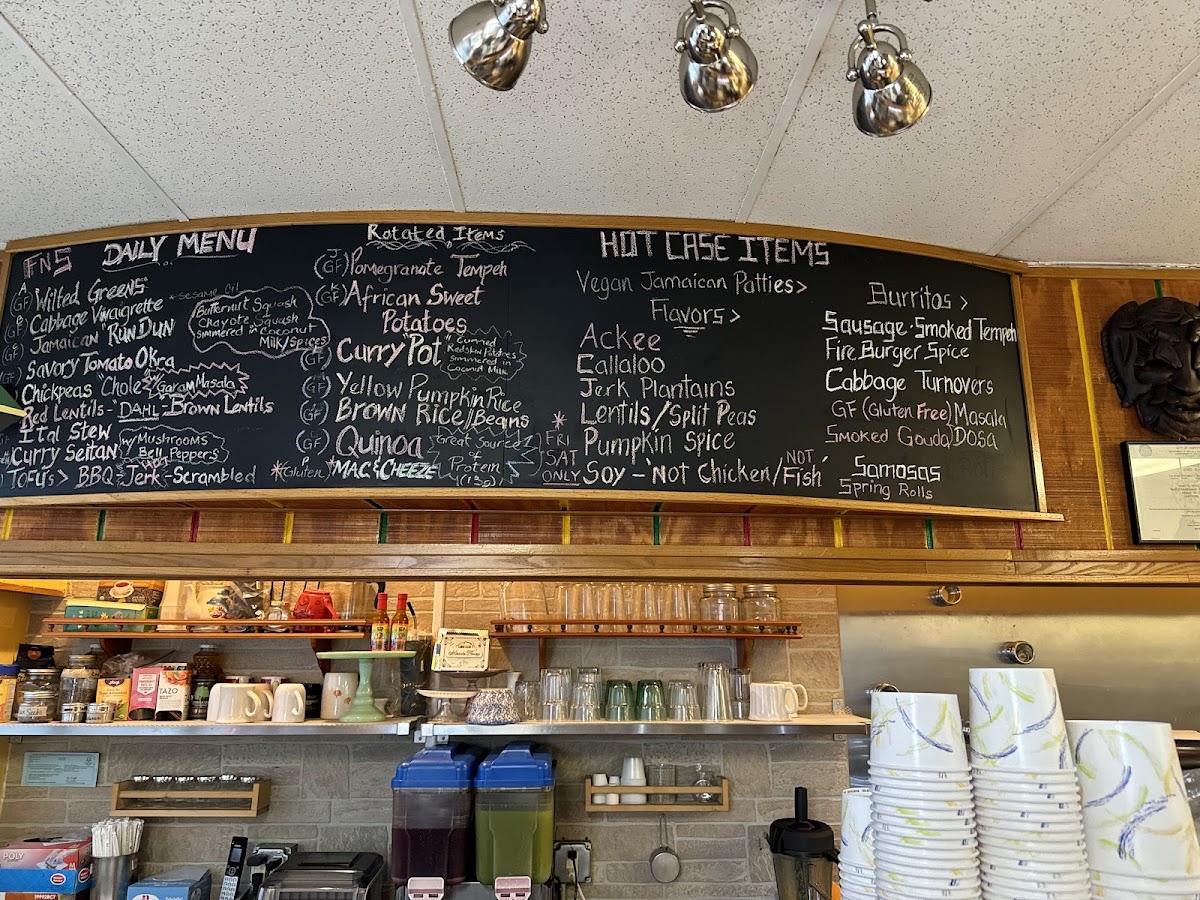 FNS
DAILY MENU
A
(GF) Wilted Greens
(GF) Cabbage Vinaigrette
*sesame oil
(GF) Jamaican "RunDun"
Butternut Squash
+
Chayote Squash
Simmered in Coconut
Milk/Spices
(GF) Savory Tomato Okra
Chickpeas "Chole"
Garam Masala
Red Lentils - DAHL - Brown Lentils
Ital Stew
Curry Seitan
w/Mushrooms
Bell Peppers
Tofu's > BBQ - Jerk - Scrambled
HOT
Rotated Items
J
(GF) Pomegranate Tempeh
K
(GF) African Sweet
Potatoes
(GF) Curry Pot
Redskin Potatoes
Simmered in
Coconut Milk
(GF) Yellow Pumpkin Rice
(GF) Brown Rice//Beans
(GF) Quinoa
Great Source
of
Protein
*(Gluten) MAC & CHEEZE
HOT CASE ITEMS
Vegan Jamaican Patties >
Flavors >
Ackee
Callaloo
Jerk Plantains
Lentils/Split Peas
Pumpkin Spice
Soy - 'Not Chicken/Fish'
NOT
*
FRI
SAT
ONLY
Burritos >
Sausage · Smoked Tempeh
Fire Burger Spice
Cabbage Turnovers
GF (Gluten Free) Masala
Smoked Gouda Dosa
Samosas
Spring Rolls
TAZO
POLY